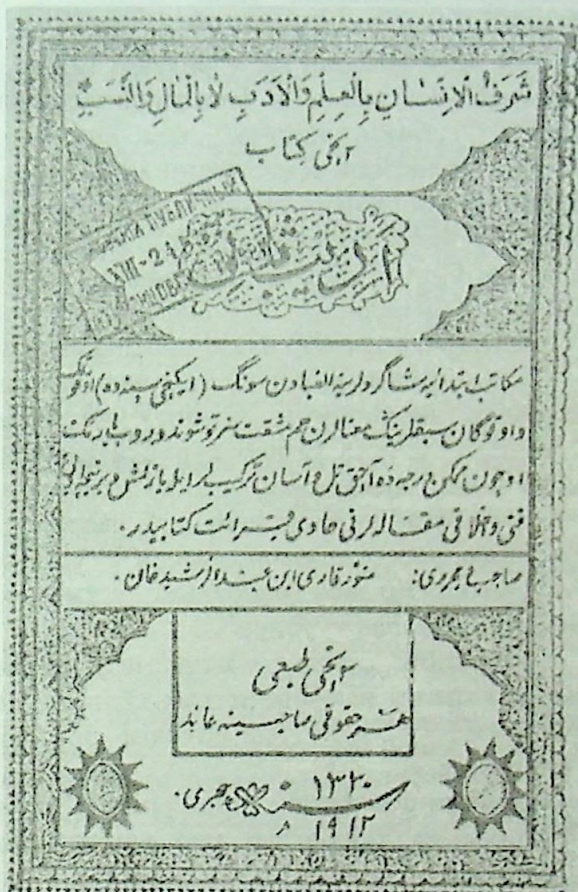 شَرَفُ الْاِنْسَانِ بِالْعِلْمِ وَالْاَدَبِ لَا بِالْمَالِ وَالنَّسَبِ
۲نچی کتاب
ادیب ثانی
مکاتب ابتدائیه شاگردلرینه الفبادن سونگ (ایکنچی سنه‌ده)
و اوقوگان سبقلرینگ معنالرن هم مشقت‌سز توشوندوروب بارمک
اوچون ممکن درجه‌ده آچق تل و آسان ترکیب لر ایله یازلمش برنچه
فنی و اخلاقی مقاله لرنی حاوی قرائت کتابیدر.
صاحب و محرری: منور قاری ابن عبدالرشید خان.
۲نچی طبعی
هر حقوقی صاحبینه عائد
۱۳۳۰
سنه هجری.
۱۹۱۲ م